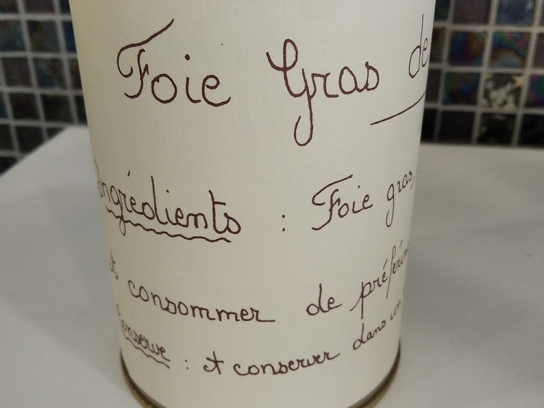 Foie Gras de
Ingrédients : Foie gras
consommer de préfére
onserve : A conserver dans